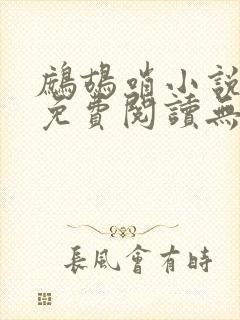 鷓鴣哨小說
免費閱讀無
長風會有時